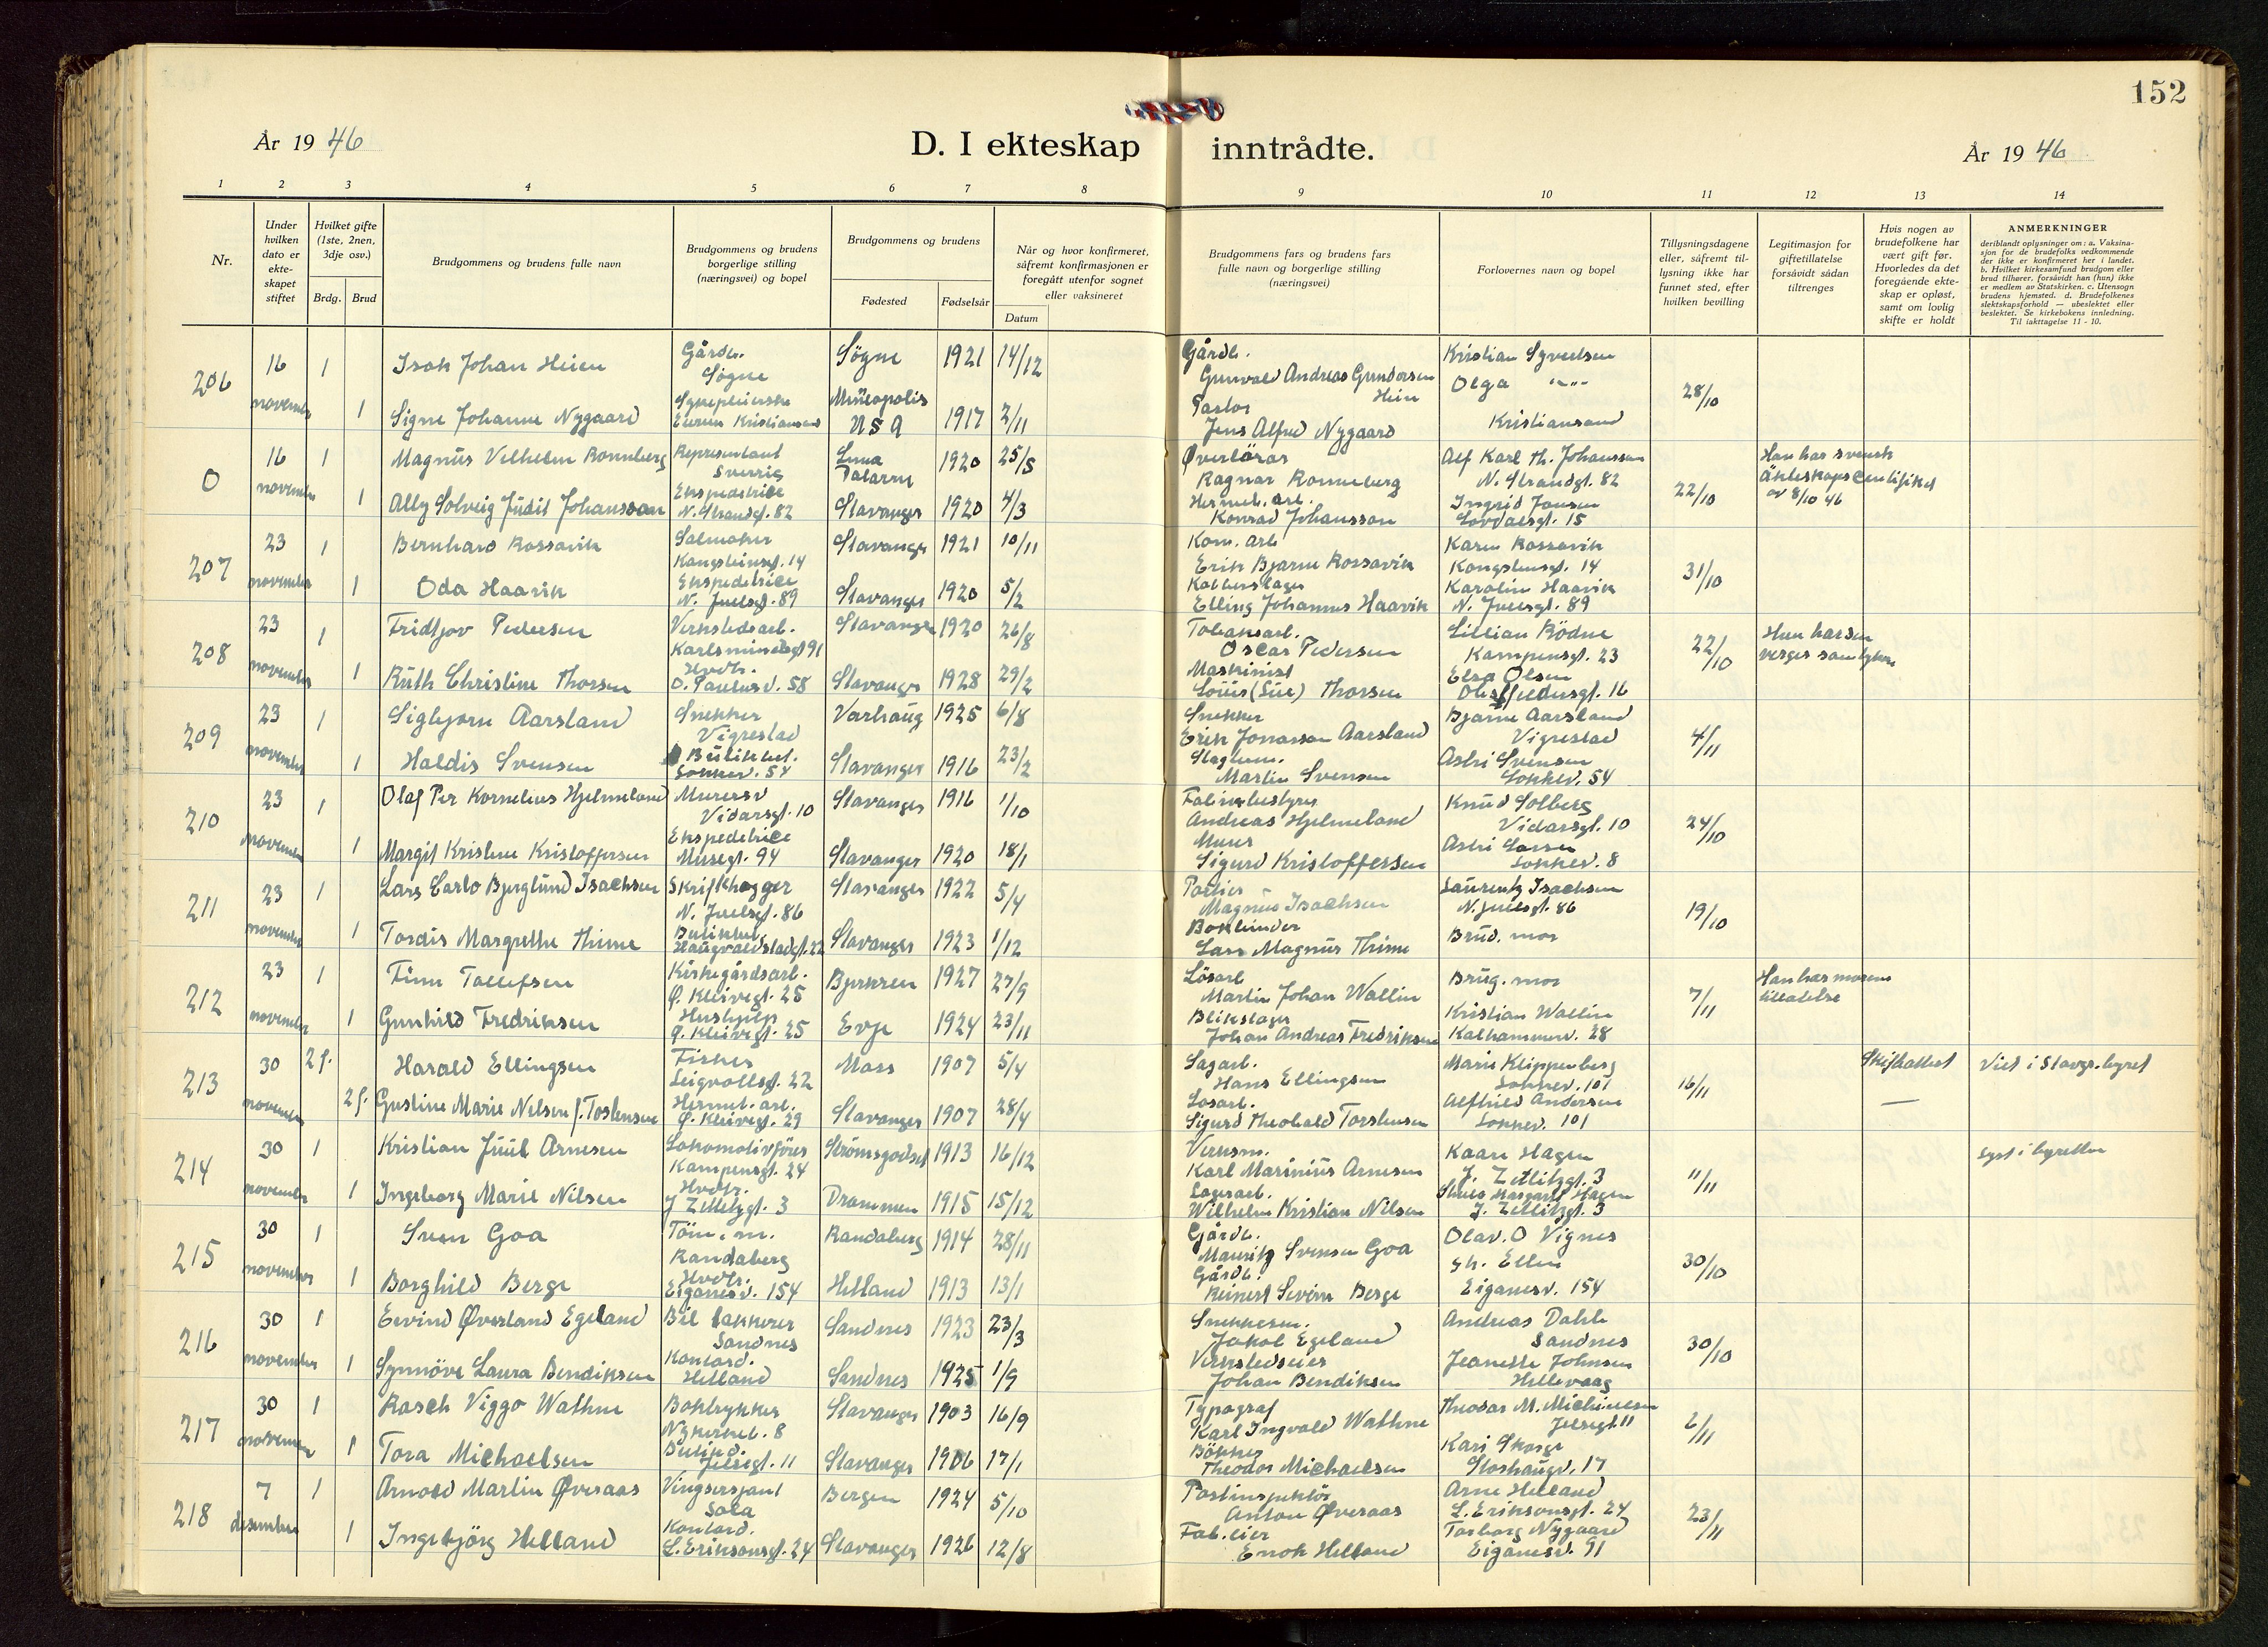 152
År 19 46
D. I ekteskap inntrådte.
År 19 46
1 2 3 4 5 6 7 8 9 10 11 12 13 14
Nr.
Under hvilken dato er ekte- skapet stiftet
Hvilket gifte (1ste, 2nen, 3dje osv.)
Brdg. Brud
Brudgommens og brudens fulle navn
Brudgommens og brudens borgerlige stilling (næringsvei) og bopel
Brudgommens og brudens
Fødested Fødselsår
Når og hvor konfirmeret, såfremt konfirmasjonen er foregått utenfor sognet eller vaksineret
Datum
Brudgommens fars og brudens fars fulle navn og borgerlige stilling (næringsvei)
Forlovernes navn og bopel
Tillysningsdagene eller, såfremt til- lysning ikke har funnet sted, efter hvilken bevilling
Legitimasjon for giftetillatelse forsåvidt sådan tiltrenges
Hvis nogen av brudefolkene har vært gift før. Hvorledes da det foregående ekte- skap er opløst, samt om lovlig skifte er holdt
ANMERKNINGER
deriblandt oplysninger om: a. Vaksina- sjon for de brudefolks vedkommende der ikke er konfirmeret her i landet. b. Hvilket kirkesamfund brudgom eller brud tilhører, forsåvidt han (hun) ikke er medlem av Statskirken. c. Utensogn brudens hjemsted. d. Brudefolkenes slektskapsforhold — ubeslektet eller beslektet. Se kirkebokens innledning. Til iakttagelse 11 - 10.
206 16 november 1 Isak Johan Heien Gårdb. Søgne Søgne 1921 14/12 Gårdb. Gunvald Andreas Gundersen Kristian Syvertsen Olga "-" 28/10
1 Signe Johanne Nygaard Kristiansand USA 1917 2/11 Pastor Jens Alfred Nygaard Kristiansand
0 16 november 1 Magnus Vilhelm Ronneberg Representant Sverrig 1920 25/5 Ragnar Ronneberg Alf Karl Th. Johansson N. Strandgt. 82 22/10 Han har svensk av 8/10 46
1 Ally Solveig Judit Johansson Ekspeditrice N. Strandgt. 82 Stavanger 1920 4/3 Hermet. arb. Konrad Johansson Ingrid Jensen
207 23 november 1 Bernhard Rossavik Salmaker Kongsteinsgt. 14 Stavanger 1921 10/11 Kom. arb Erik Bjarne Rossavik Karen Rossavik Kongsteinsgt. 14 31/10
1 Oda Haavik Ekspeditrice N. Juelsgt. 89 Stavanger 1920 5/2 Elling Johannes Haavik Karolin Haavik N. Juelsgt. 89
208 23 november 1 Fridtjov Pedersen Verkstedsarb. Stavanger 1920 26/8 Tobaksarb. Oscar Pedersen Lillian Rödne Kampensgt. 23 22/10 Hun har sin verges samtykke
1 Ruth Christine Thorsen Hvdtr. 58 Stavanger 1928 29/2 Maskinist Thorsen Elsa Olsen 16
209 23 november 1 Sigbjørn Aarsland Snekker Vigrestad Varhaug 1925 6/8 Snekker Erik Jonassen Aarsland Bjarne Aarsland Vigrestad 4/11
1 Haldis Svensen Lokkev. 54 Stavanger 1916 23/2 Martin Svensen Astri Svensen Lokkev. 54
210 23 november 1 Olaf Per Kornelius Hjelmeland Murersv Vidarsgt. 10 Stavanger 1916 1/10 Andreas Hjelmeland Knud Solberg Vidarsgt. 10 24/10
1 Margit Kristine Kristoffersen Ekspeditrice Musegt. 94 Stavanger 1920 18/1 Murer Sigurd Kristoffersen Astri Larsen Lokkev. 8
211 23 november 1 Lars Carlo Bjerglund Isachsen N. Juelsgt. 86 Stavanger 1922 5/4 Portier Magnus Isachsen Laurentz Isachsen N. Juelsgt. 86 19/10
1 Tordis Margrethe Thime Haugvaldstadgt. 22 Stavanger 1923 1/12 Bokbinder Lars Magnus Thime Brud. mor
212 23 november 1 Finn Tollefsen Kirkegårdsarb. Ø. Kleivegt. 25 1927 27/9 Lösarb Martin Johan Wallin Brug. mor 7/11 Han har morens tillatelse
1 Gunhild Fredriksen Hushjelp Ø. Kleivegt. 25 Evje 1924 23/11 Blikslager Johan Andreas Fredriksen Kristian Wallin Kalhammerv. 28
213 30 november 2 g. Harald Ellingsen Fisker 22 Moss 1907 5/4 Sagarb. Hans Ellingsen Marie Klippenberg Lokkev. 101 16/11 Skifteattest Viet i Stavgr. byret
2 g. Gustine Marie Nilsen f. Tostensen Hermet. arb. Ø. Kleivegt. 29 Stavanger 1907 28/4 Losarb. Sigurd Theobald Torstensen Alfhild Andersen Lokkev. 101 —
214 30 november 1 Kristian Juul Arnesen Lokomotivfører Kampensgt. 24 Strömsgodset 1913 16/12 Verksm. Karl Marinius Arnesen Kaare Hagen J. Zetlitzgt. 3 11/11 Lyst i byretten
1 Ingeborg Marie Nilsen Hvdtr. J Zetlitzgt. 3 Drammen 1915 15/12 Lagerarb. Wilhelm Kristian Nilsen Margaret Hagen J. Zetlitzgt. 3
215 30 november 1 Sven Goa Töm. m. Randaberg Randaberg 1914 28/11 Gårdb. Mauritz Svensen Goa Olav. O Vignes 30/10
1 Borghild Berge Hvdtr. Eiganesv. 154 Helland 1913 13/1 Gårdb. Reinert Severin Berge Ellen Eiganesv. 154
216 30 november 1 Eivind Øverland Egeland Bil lakkerer Sandnes Sandnes 1923 23/3 Snekkerm. Jakob Egeland Andreas Dahle Sandnes 30/10
1 Synnöve Laura Bendiksen Kontord. Helland Sandnes 1925 1/9 Verkstedseier Johan Bendiksen Jeanette Johnsen Hillevaag
217 30 november 1 Rasch Viggo Wathne Boktrykker 8 Stavanger 1903 16/9 Typograf Karl Ingvald Wathne Theodor M. Michaelsen Jelsegt 11 2/11
1 Tora Michaelsen Jelsegt. 11 Stavanger 1906 17/1 Bökker Theodor Michaelsen Kari Skorge 17
218 7 desember 1 Arnold Martin Øveraas Vingsersjant Sola Bergen 1924 5/10 Postinspektör Anton Øveraas Arne Helland L. Eriksonsgt. 24 23/11
1 Ingebjörg Helland Kontord. L. Eriksonsgt. 24 Stavanger 1926 12/8 Fab. eier Enok Helland Torborg Nygaard Eiganesv. 91